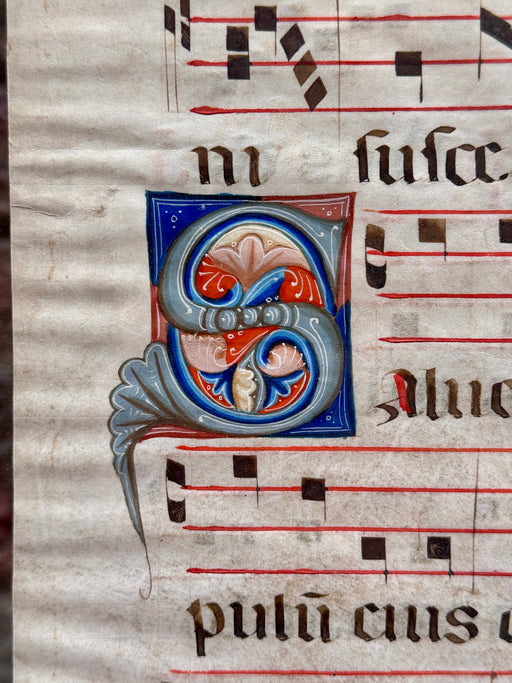 ni susce
SAluu
pulū eius